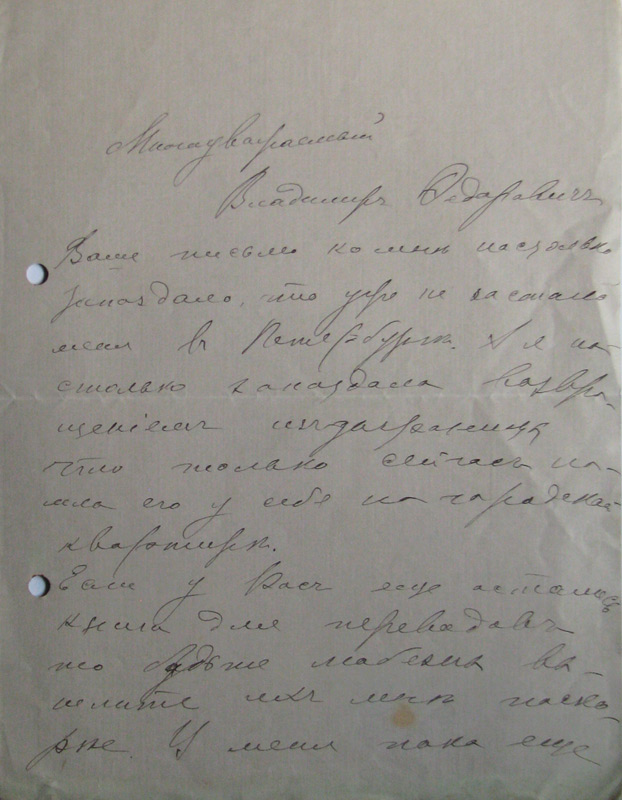 Многоуважаемый
Владимиръ Федоровичъ
Ваше письмо ко мнѣ настолько
запоздало, что уже не застало
меня въ Петербургѣ. А я на-
столько запоздала возвра-
щеніемъ изъ заграницы
что только сейчасъ на-
шла его у себя на городской
квартирѣ.
Если у Васъ еще остались
книги для переводовъ
то будьте любезны вы-
шлите ихъ мнѣ поско-
рѣе. У меня пока еще